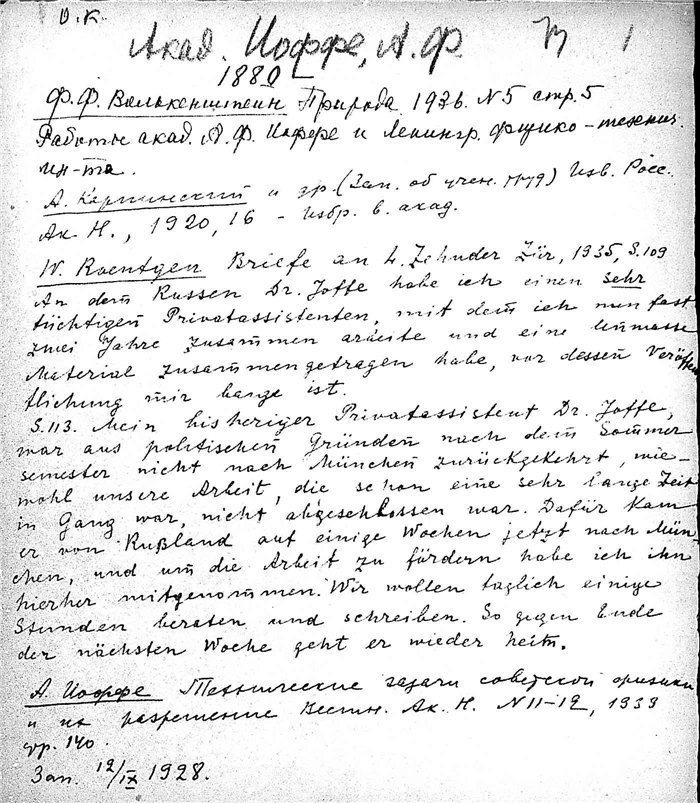 О.К.
Акад. Иоффе, А.Ф. 1
1880
Ф.Ф. Волькенштейн Природа 1936. N5 стр.5
Работы акад. А.Ф. Иоффе и Ленингр. физико-технич.
ин-та.
А. Карпинский и др. (Зап. об учен. труд) Изв. Росс.
Ак. Н., 1920, 16 - Избр. в акад.
W. Roentgen Briefe an L. Zehnder Zür, 1935, S.109
An dem Russen Dr. Joffe habe ich einen sehr
tüchtigen Privatassistenten, mit dem ich nun fast
zwei Jahre zusammen arbeite und eine Unmasse
Material zusammengetragen habe, vor dessen Veröffen
tlichung mir bange ist.
S.113. Mein bisheriger Privatassistent Dr. Joffe,
war aus politischen Gründen nach dem Sommer
semester nicht nach München zurückgekehrt, wie-
wohl unsere Arbeit, die schon eine sehr lange Zeit
in Gang war, nicht abgeschlossen war. Dafür kam
er von Rußland auf einige Wochen jetzt nach Mün-
chen, und um die Arbeit zu fördern habe ich ihn
hierher mitgenommen. Wir wollen täglich einige
Stunden beraten und schreiben. So gegen Ende
der nächsten Woche geht er wieder heim.
А. Иоффе Технические задачи советской физики
и их разрешение Вестн. Ак. Н. N11-12, 1939
стр. 140.
Зап. 12/IX 1928.